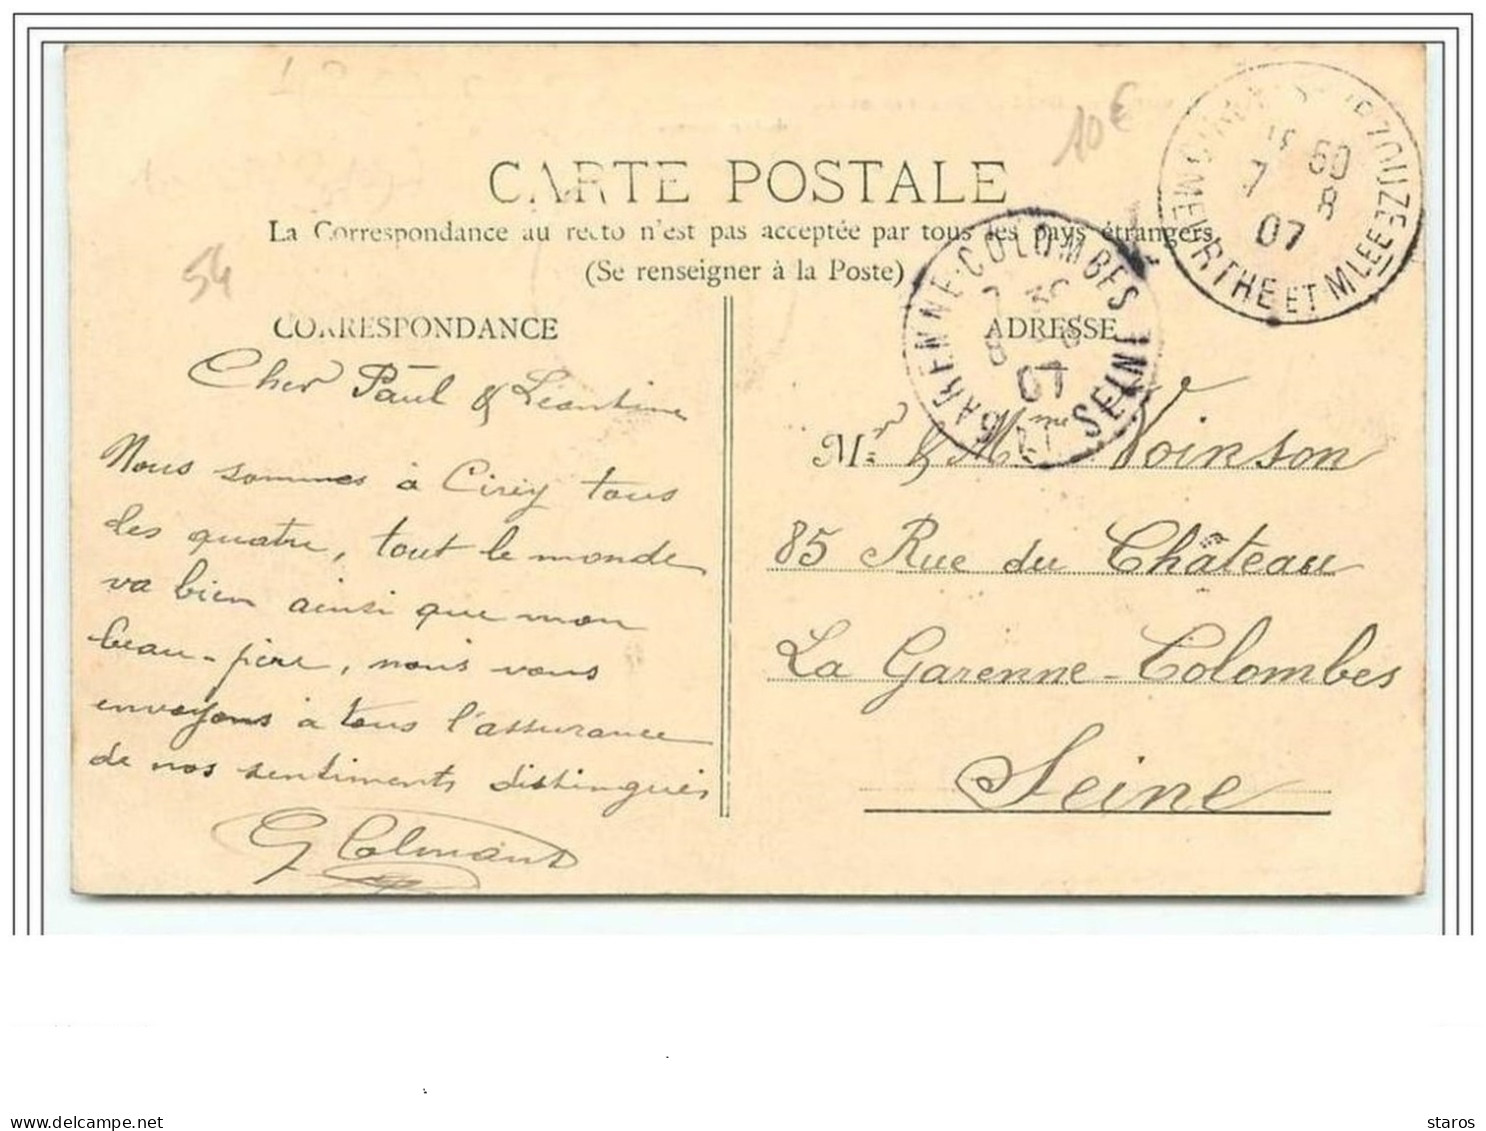 10€
CARTE POSTALE
La Correspondance au recto n'est pas acceptée par tous les pays étrangers
(Se renseigner à la Poste)
54
CORRESPONDANCE
Cher Paul & Léontine
Nous sommes à Cirey tous
les quatre, tout le monde
va bien ainsi que mon
beau-père, nous vous
envoyons à tous l'assurance
de nos sentiments distingués
G Colmant
ADRESSE
Mr & Mme Voinson
85 Rue du Château
La Garenne-Colombes
Seine
GARENNE-COLOMBES
8 8
07
SEINE
50
7 8
07
MEURTHE ET MLLE
delcampe.net
staros